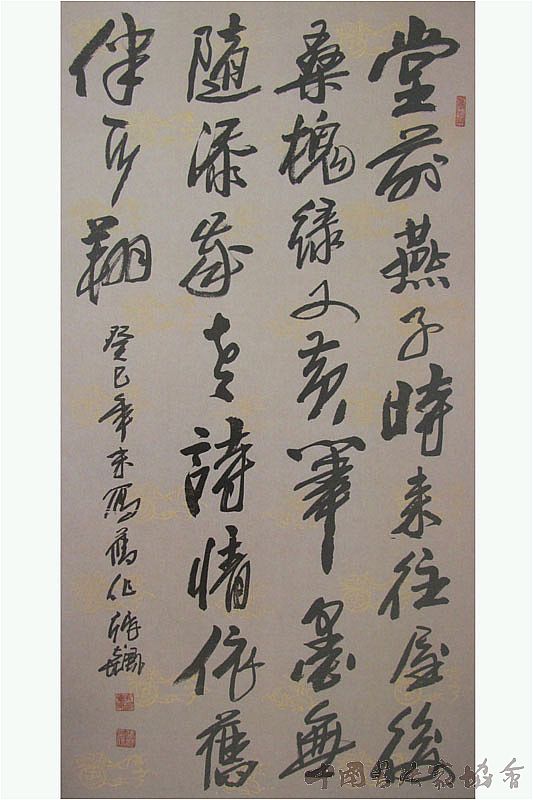 堂前燕子時来往屋後
桑槐緑又黄筆墨無
隨添歲老詩情依舊
伴翔
癸巳年末寫舊作
中國書法家協會